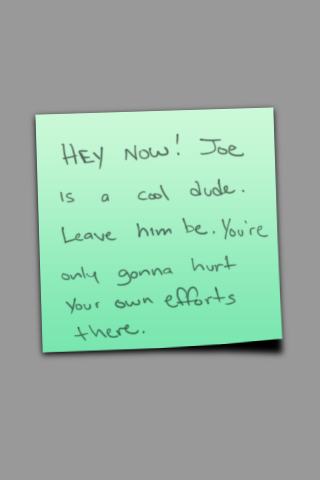 HEY NOW! Joe
is a cool dude.
Leave him be. You're
only gonna hurt
your own efforts
there.